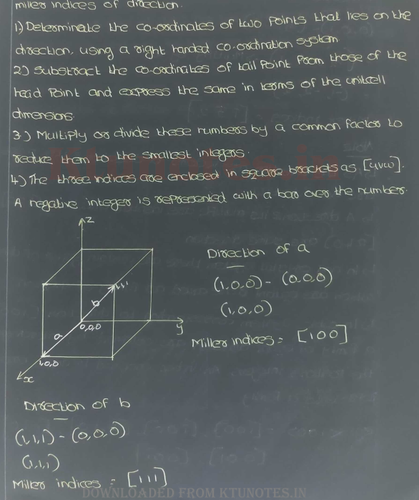 miller indices of direction.
1) Determinate the co-ordinates of two points that lies on the
direction. using a right handed co-ordination system
2) substract the co-ordinates of tail point from those of the
head point and express the same in terms of the unitcell
dimensions
3) Multiply or divide these numbers by a common factor to
reduce them to the smallest integers.
Ktunotes.in
4) The three indices are enclosed in square brackets as [uvw].
A negative integer is represented with a bar over the number.
z
Direction of a
(1,0,0) - (0,0,0)
(1,0,0)
Miller indices = [100]
b
1,1,1
a
0,0,0
y
1,0,0
x
Direction of b
(1,1,1) - (0,0,0)
(1,1,1)
Miller indices = [111]
DOWNLOADED FROM KTUNOTES.IN